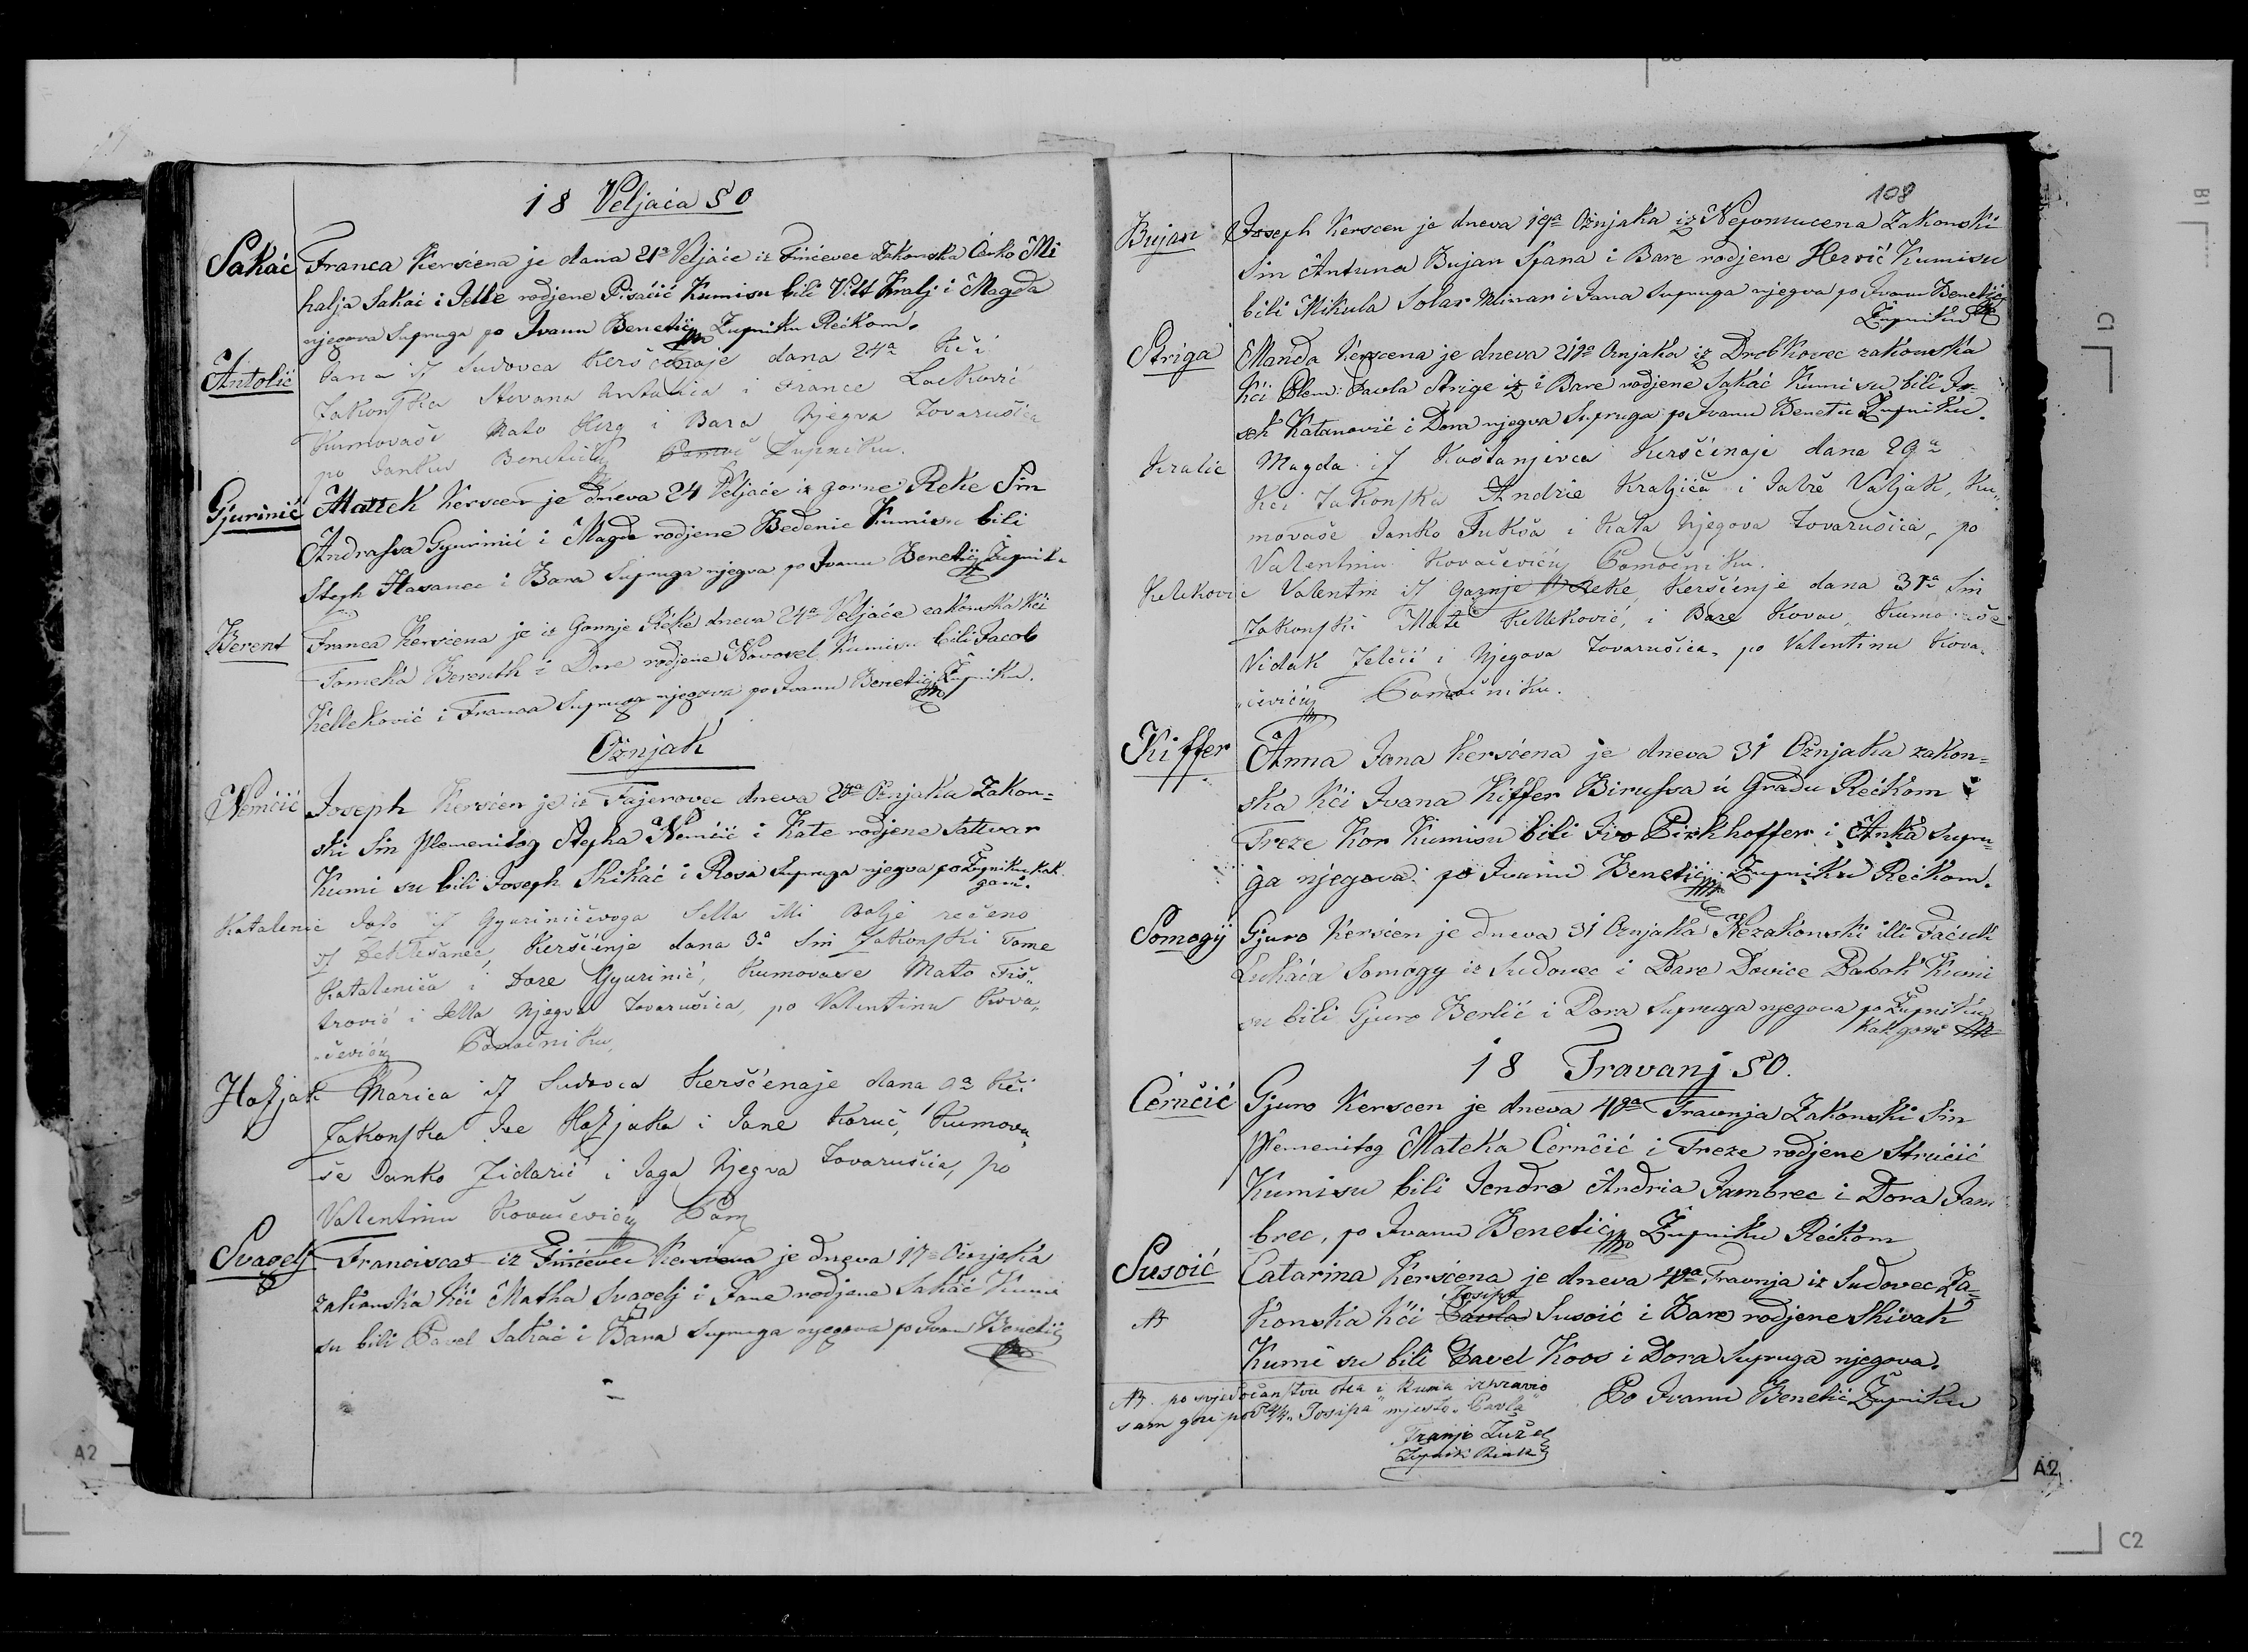 18 Veljaća 50
Sakać Franca Kersćena je dana 21a Veljaće iz Finćevec Zakonska Ćerko Mi
halja Sakać i Jelle rodjene Pisaćić Kumisu bili Vitt Kralj i Magda
njegova Supruga po Ivanu Benetić Župniku Rečkom.
Antolić Jana iz Sudovca Keršćenaje dana 24a Kći
Zakonska Stevana Antolića i France Lacković
Kumovaše Mato Kerg i Bara Njegva Tovarušica
po Janku Benetiću Župniku.
Gjurinić Mattek Kerscen je dneva 24 Veljaće iz gorne Reke Sin
Andrassa Gyurinić i Magde rodjene Bedenic Kumisu bili
Steph Havanec i Bara Supruga njegva po Ivanu Benetić Župnik.
Berent Franca Kersćena je iz Gornje Réke dneva 24a Veljaće zakonska Kći
Tomeka Berenth i Dore rodjene Novosel Kumisu bili Jacob
Kelleković i Franca Supruga njegova po Ivanu Benetić Župniku.
Ožnjak
Nemćić Joseph Kersćen je iz Fajerovec dneva 2ga Ožnjaka Zakon=
ski Sin Plemenitog Stepha Nemćić i Kate rodjene Sattvar
Kumi su bili Joseph Skikać i Rosa Supruga njegva po Župniku kak
gori.
Katalenić Joso iz Gyurinićevoga Sella illi Bolje rečeno
iz Deklešanec, Keršćenje dana 3a Sin Zakonski Tome
Katalenića i Dore Gyurinić, Kumovaše Mato Fiš„
trović i Jella Njegva Tovarušica, po Valentinu Kova„
„čeviću Pomoćniku.
Hazjak Marica iz Sudovca Keršćenaje dana 9a Kći
Zakonska Ive Hazjaka i Jane Koruć, Kumova„
še Janko Zidarić i Jaga Njegva Tovarušica, po
Valentinu Kovačeviću Pom
Svagelj Francisca iz Finćevec Kersćena je dneva 17a Ožnjaka
zakonska Kći Matha Svagelj i Jane rodjene Sakać Kumi
su bili Pavel Sakać i Bara Supruga njegova po Ivanu Benetić
108
Bujan Joseph Kerscen je dneva 19ga Ožnjaka iz Nepomucena Zakonski
Sin Antuna Bujan Spana i Bare rodjene Hervić Kumisu
bili Mikula Solar Mlinar i Jana Supruga njegva po Ivanu Benetić
Župniku
Striga Manda Kerscena je dneva 21ga Ožnjaka iz Drobkovec zakonska
Kći Plem: Pavla Strige iz i Bare rodjene Sakać Kumi su bili Jo=
sek Katanović i Dora njegva Supruga po Ivanu Benetić Župniku.
Kralić Magda iz Kostanjevca Keršćenaje dana 29a
Kći Zakonska Andrie Kraljića i Jalže Valjak, Ku„
movaše Janko Fukša i Kata Njegova Tovarušica, po
Valentinu Kovačeviću Pomoćniku.
Keleković Valentin iz Gornje Reke, Keršćenje dana 31a Sin
Zakonski Mate Kelleković, i Bare Kovac, Kumovaše
Vidak Jelčić i Njegova Tovarušica, po Valentinu Kova„
„čeviću Pomoćniku.
Kiffer Anna Jana Kersćena je dneva 31 Ožnjaka zakon=
ska Kći Ivana Kiffer Birussa ú Gradu Rećkom i
Treze Kor Kumisu bili Ivo Pirkhoffer i Anka Supru=
ga njegova po Ivanu Benetić Župniku Rečkom.
Somogÿ Gjuro Kersćen je dneva 31 Ožnjaka Nezakonski illi Faćuk
Lukáća Somogy iz Sudovec i Dare Dovice Babok Kumi
su bili Gjuro Berlić i Dora Supruga njegova po Župniku
Kak gori
18 Travanj 50.
Cérnčić Gjuro Kerscen je dneva 4ga Travnja Zakonski Sin
Plemenitog Mateka Cérnčić i Treze rodjene Strućić
Kumisu bili Jendra Andria Jambrec i Dora Jam
brec, po Ivanu Benetić Župniku Réckom
Susoić Catarina Kersćena je dneva 4ga Travnja iz Sudovec Za=
Josipa
NB konska Kći Pavla Susoić i Bare rodjene Skivak
Kumi su bili Pavel Koos i Dora Supruga njegova.
Po Ivanu Benetić Župniku
NB. po svjedočanstvu otca i kuma izpravio
sam gore „Josipa" mjesto „Pavla"
Franjo Žužel
A2
A2
B1
C1
C2